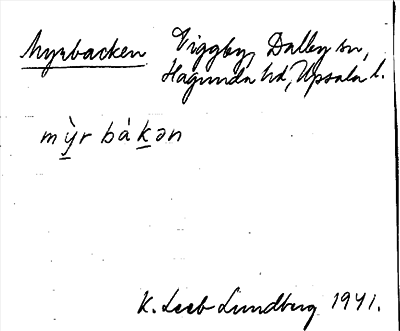 Myrbacken Viggby, Dalby sn,
Hagunda hd, Upsala l.
mỳ̱r bàḵən
K. Leeb Lundberg 1941.